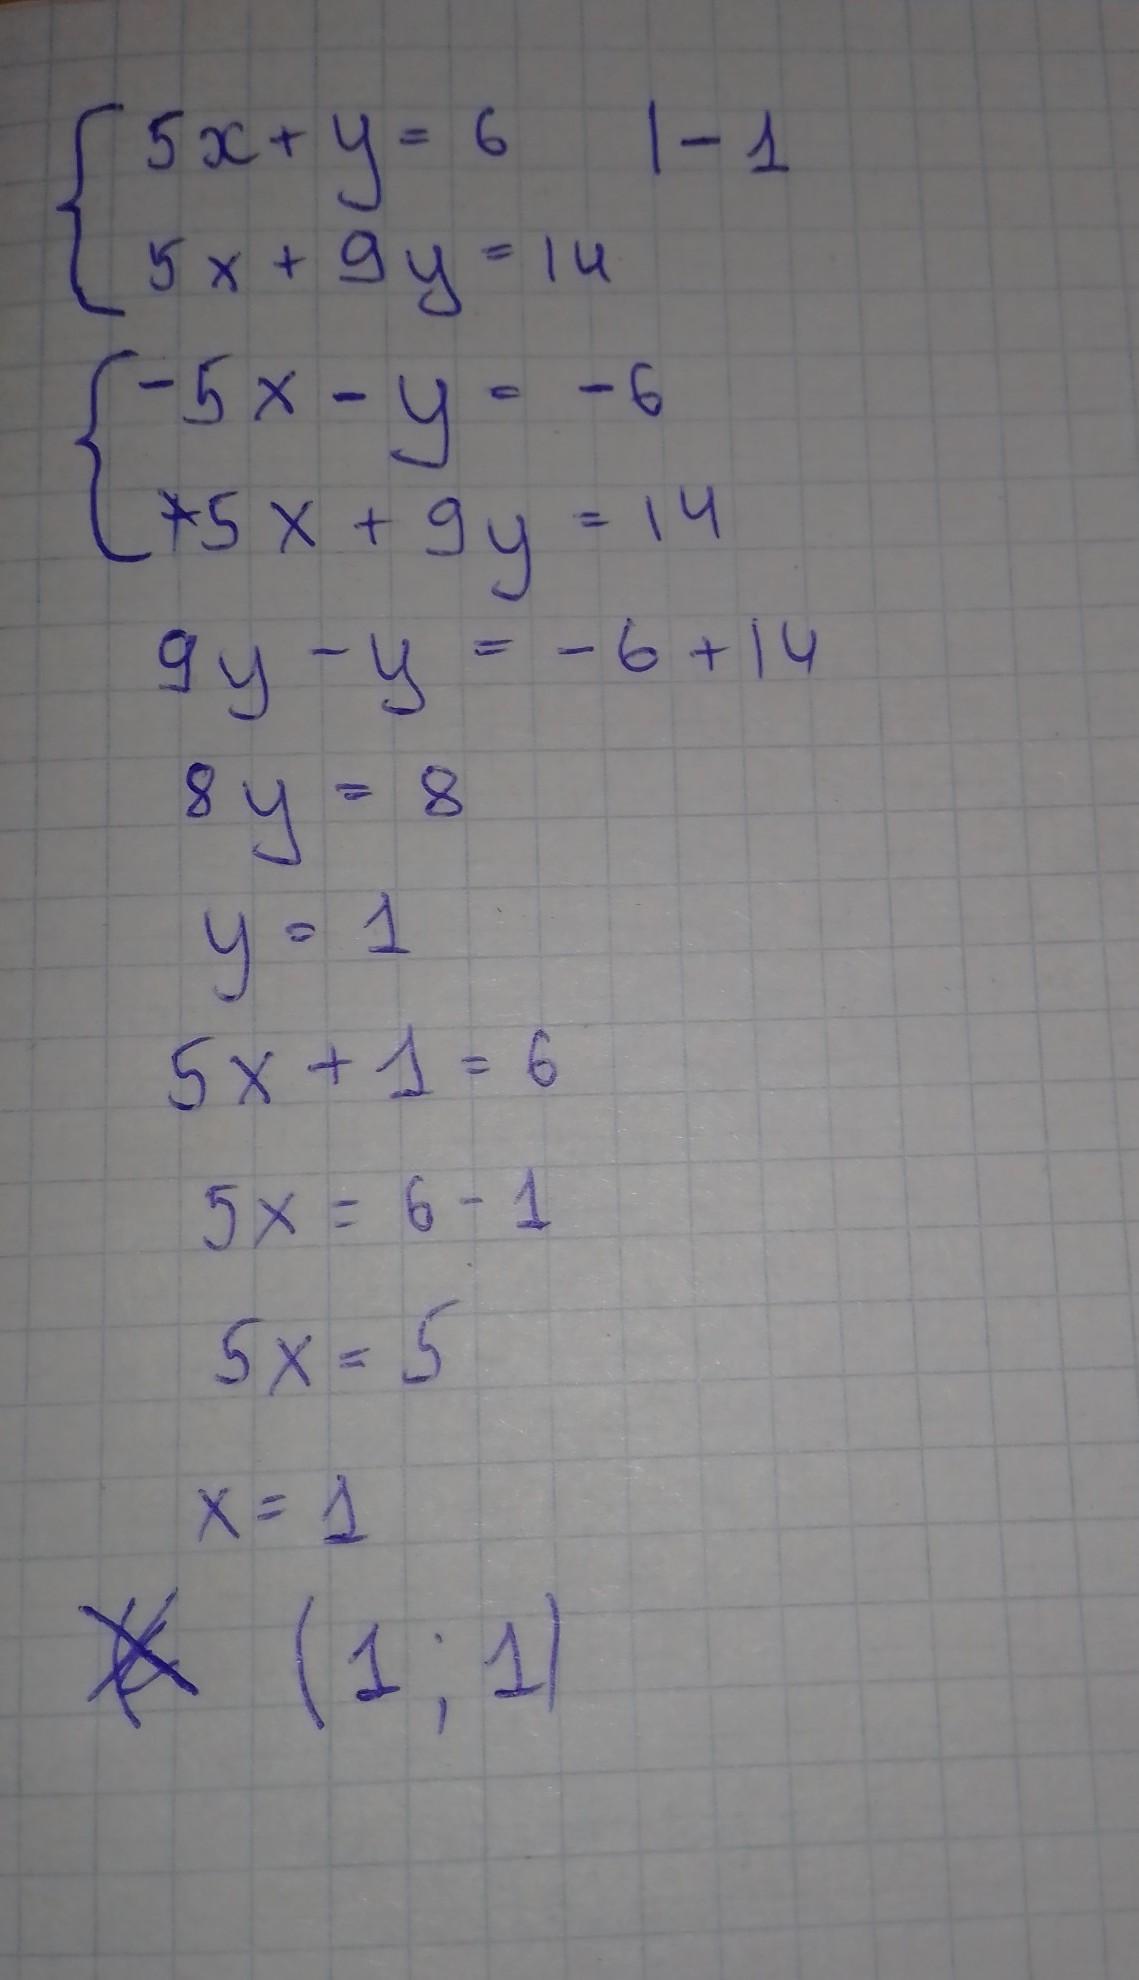 5x + y = 6 | - 1
5x + 9y = 14
-5x - y = -6
+5x + 9y = 14
9y - y = -6 + 14
8y = 8
y = 1
5x + 1 = 6
5x = 6 - 1
5x = 5
x = 1
(1; 1)